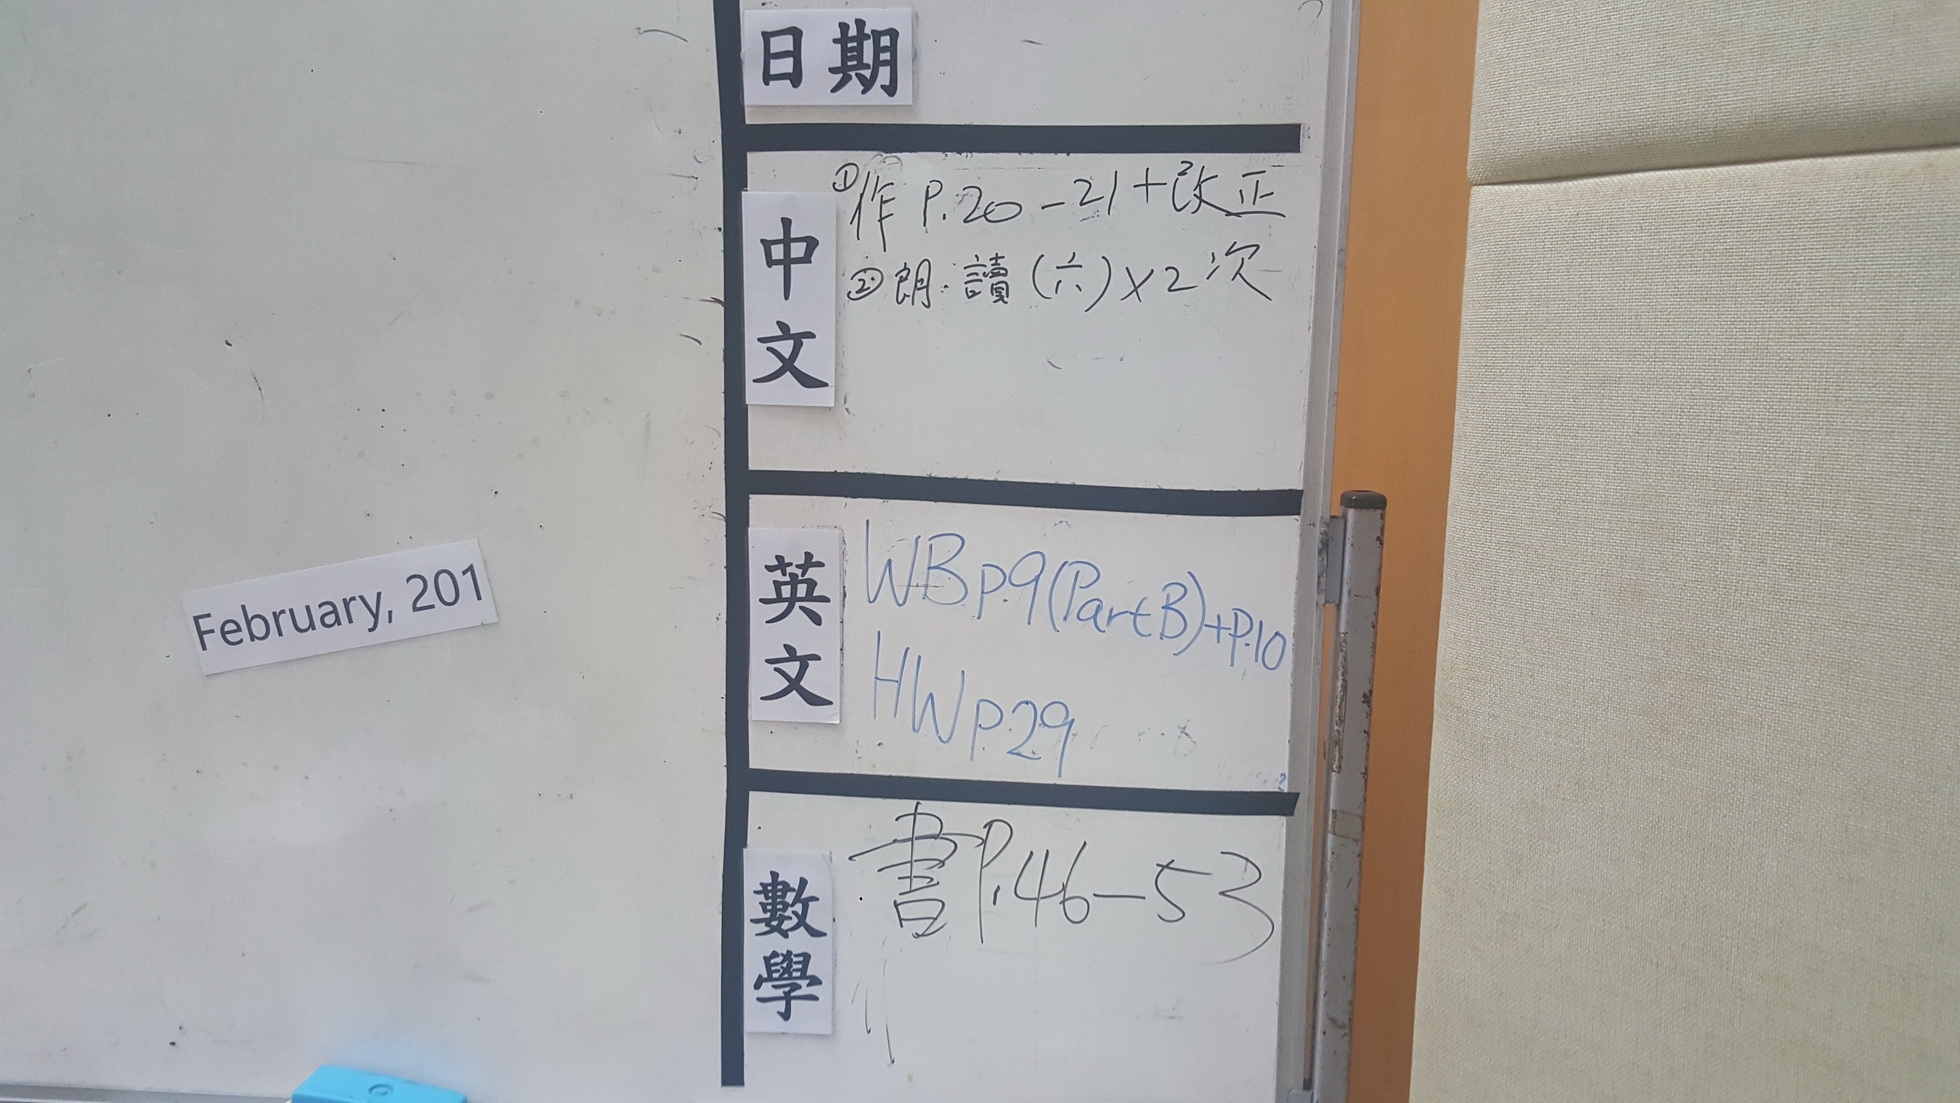 日期
中文
①作 P.20-21+改正
②朗讀(六)x2次
英文
WB p.9(Part B)+P.10
HW p29
數學
書P.46-53
February, 201